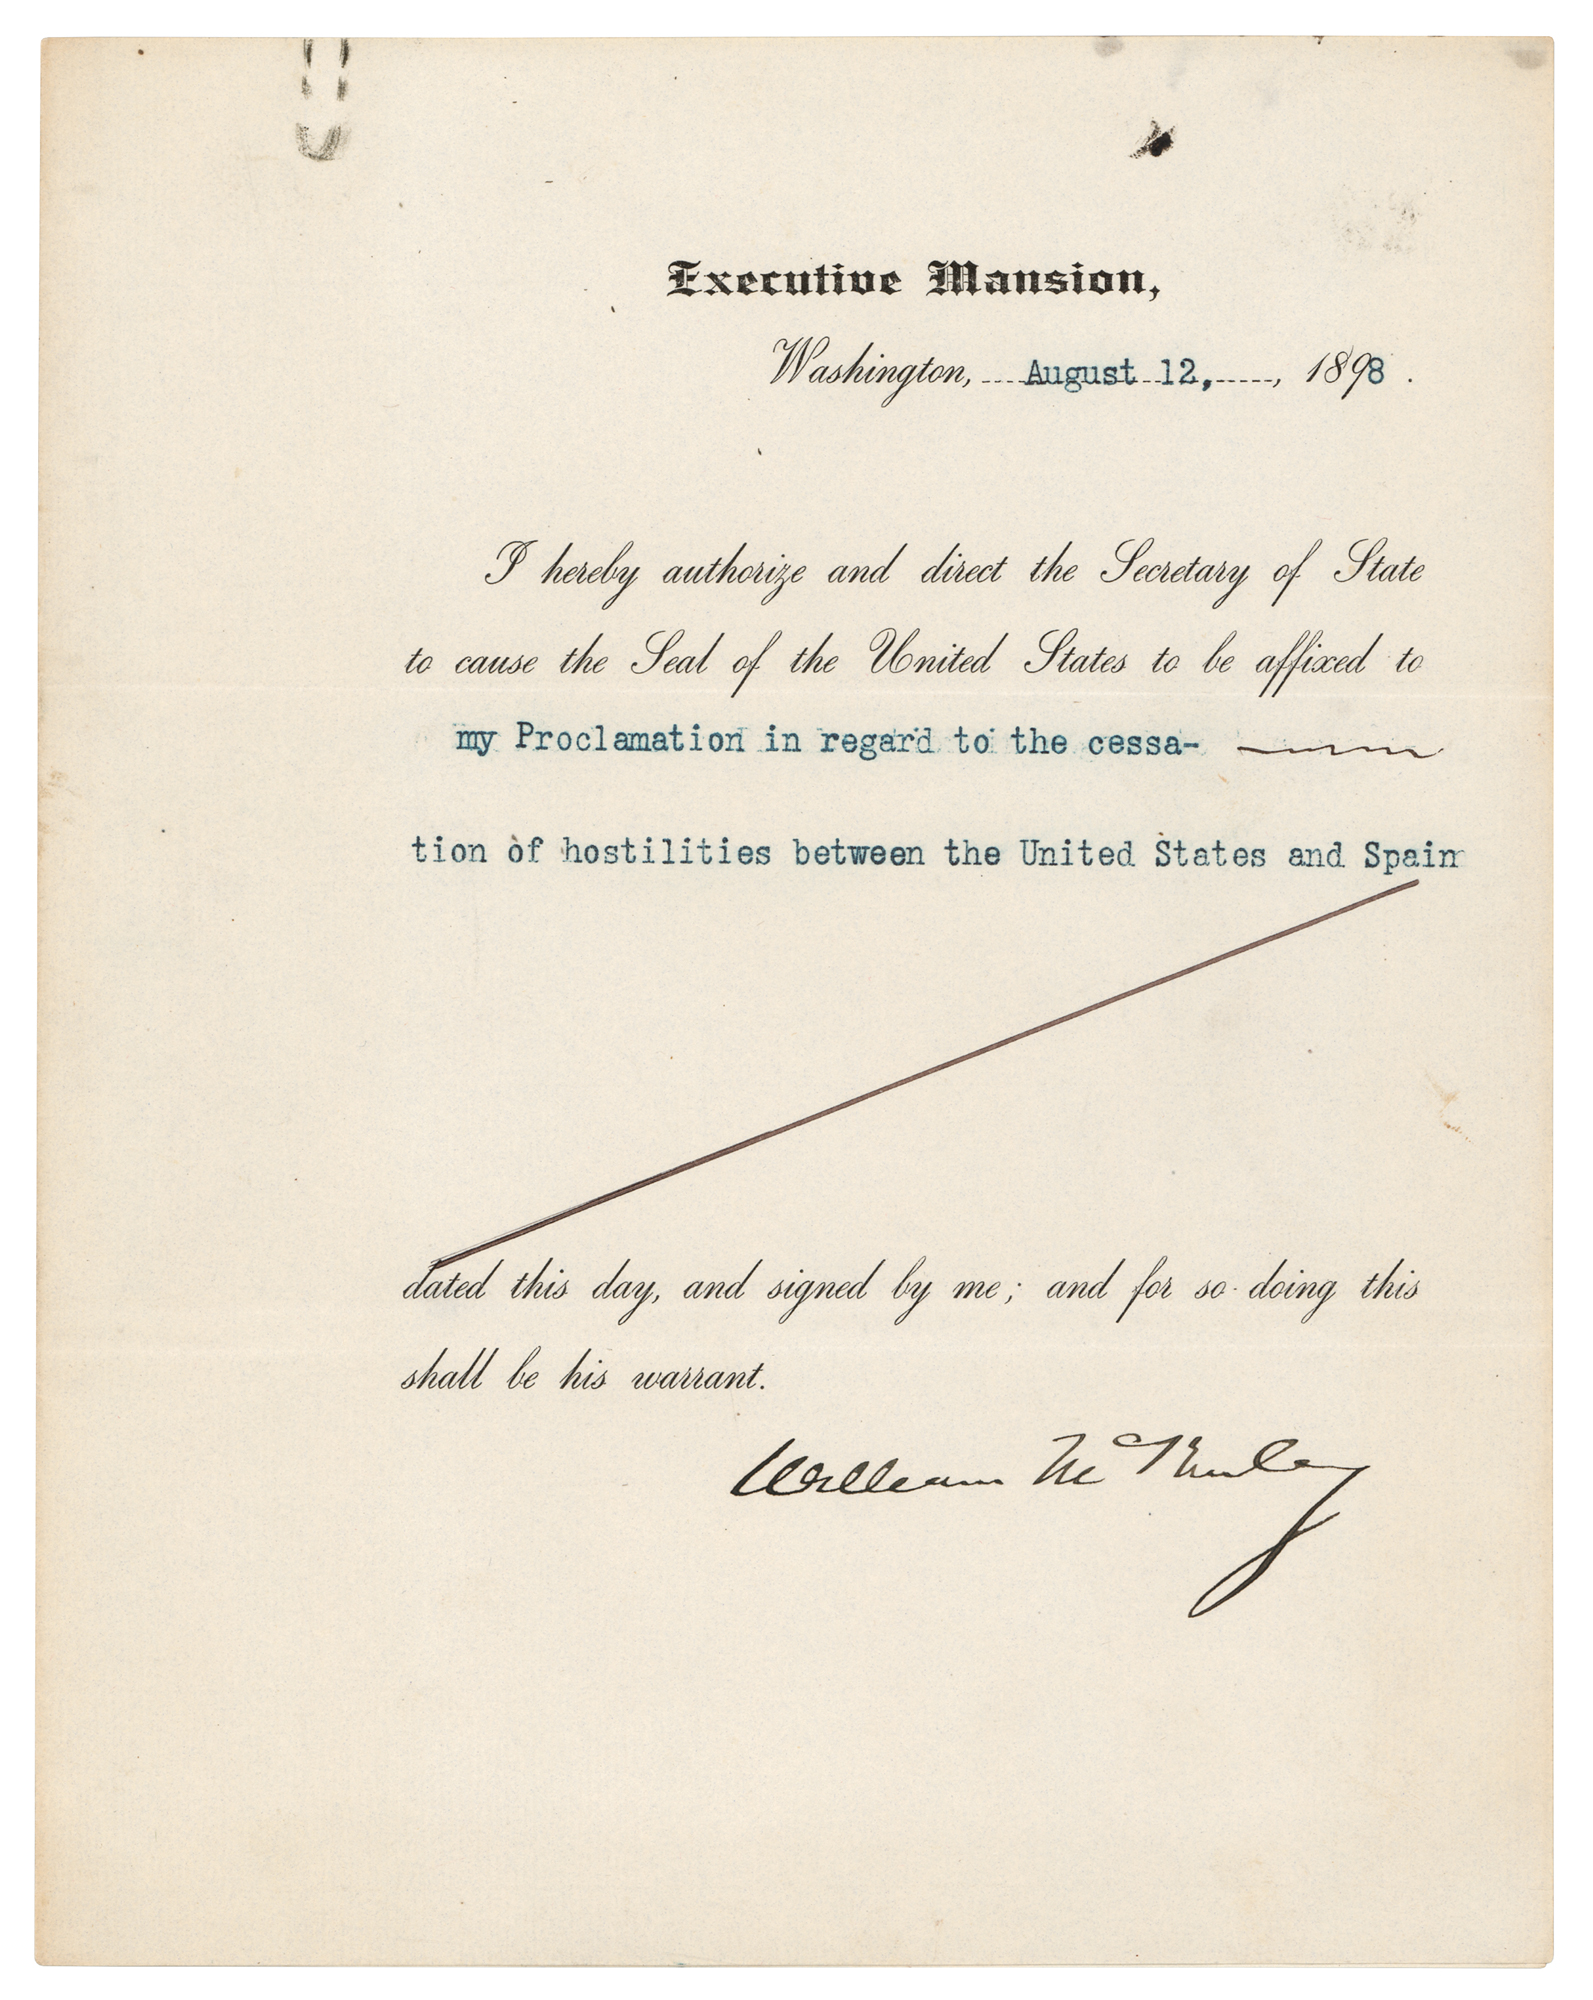 Executive Mansion,
Washington, August 12, , 1898 .
I hereby authorize and direct the Secretary of State
to cause the Seal of the United States to be affixed to
my Proclamation in regard to the cessa-
tion of hostilities between the United States and Spain
dated this day, and signed by me; and for so doing this
shall be his warrant.
William McKinley